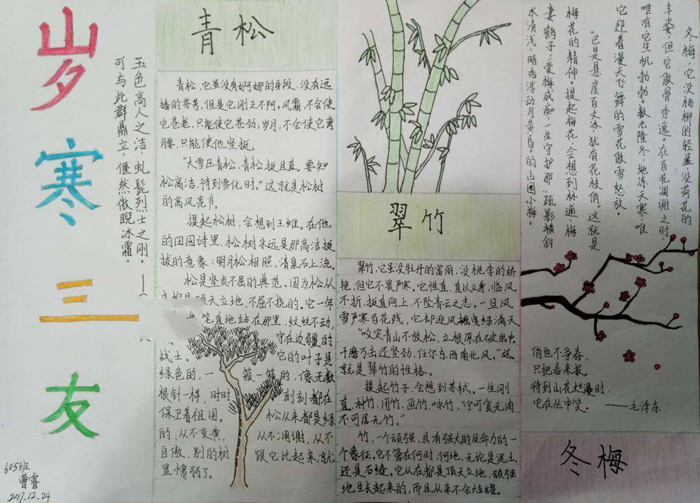 岁寒三友
玉色高人之洁,虬髯烈士之刚,
可与此群鼎立,偃然傲睨冰霜。
605班
曹
2017.12.24
青松
青松,它虽没有婀娜的身段,没有远
播的芬芳,但是它刚正不阿,风霜不会使
它苍老,只能使它苍劲,岁月不会使它弯
腰,只能使他坚挺。
"大雪压青松,青松挺且直,要知
松高洁,待到雪化时。"这就是松树
的高风亮节。
提起松树,会想到王维。在他
的田园诗里,松树永远是那高洁挺
拔的意象,明月松相照,清泉石上流。
松是坚贞不屈的典范,因为松从
顶天立地,不屈不挠的。它一年
地站在那里,纹丝不动,
守在边疆的
战士。它的叶子是
绿色的,一簇一簇的,像无数
根针一样,时时刻刻都在
保卫着祖国。松从来都是绿
的,从不变黄,从不凋谢,从不
自傲,别的树跟它比起来,就
显懦弱了。
翠竹
翠竹,它虽没牡丹的富丽,没桃李的娇
艳,但它不畏严寒。它恒直,直以立身,临风
不折,挺直向上,不坠青云之志。一旦风
雪严寒百花残,它却迎风摇曳绿满天。
"咬定青山不放松,立根原在破岩中
千磨万击还坚劲,任尔东西南北风。"这
就是翠竹的性格。
提起竹子,会想到苏轼。一生刚
直,种竹,用竹,画竹,咏竹,"宁可食无肉
不可居无竹。"
竹,一个顽强,具有强大的生命力的一
个象征。它不管在何时何地,无论是泥土
还是石缝,它从在都是顶天立地,顽强
地生长起来的,而且从来不会枯萎。
冬梅,它没杨柳的轻盈,没荷花的
丰姿,但它傲骨秀逸。在百花凋谢之时
唯有它生机勃勃。数九隆冬,地冻天寒,唯
它迎着漫天飞舞的雪花傲雪怒放。
"已是悬崖百丈冰,犹有花枝俏"这就是
梅花的精神。提起梅花,会想到林逋"梅
妻鹤子",爱梅成痴,一生守护那"疏影横斜
水清浅,暗香浮动月黄昏"的山园小梅。
俏也不争春,
只把春来报,
待到山花烂漫时,
它在丛中笑。——毛泽东
冬梅